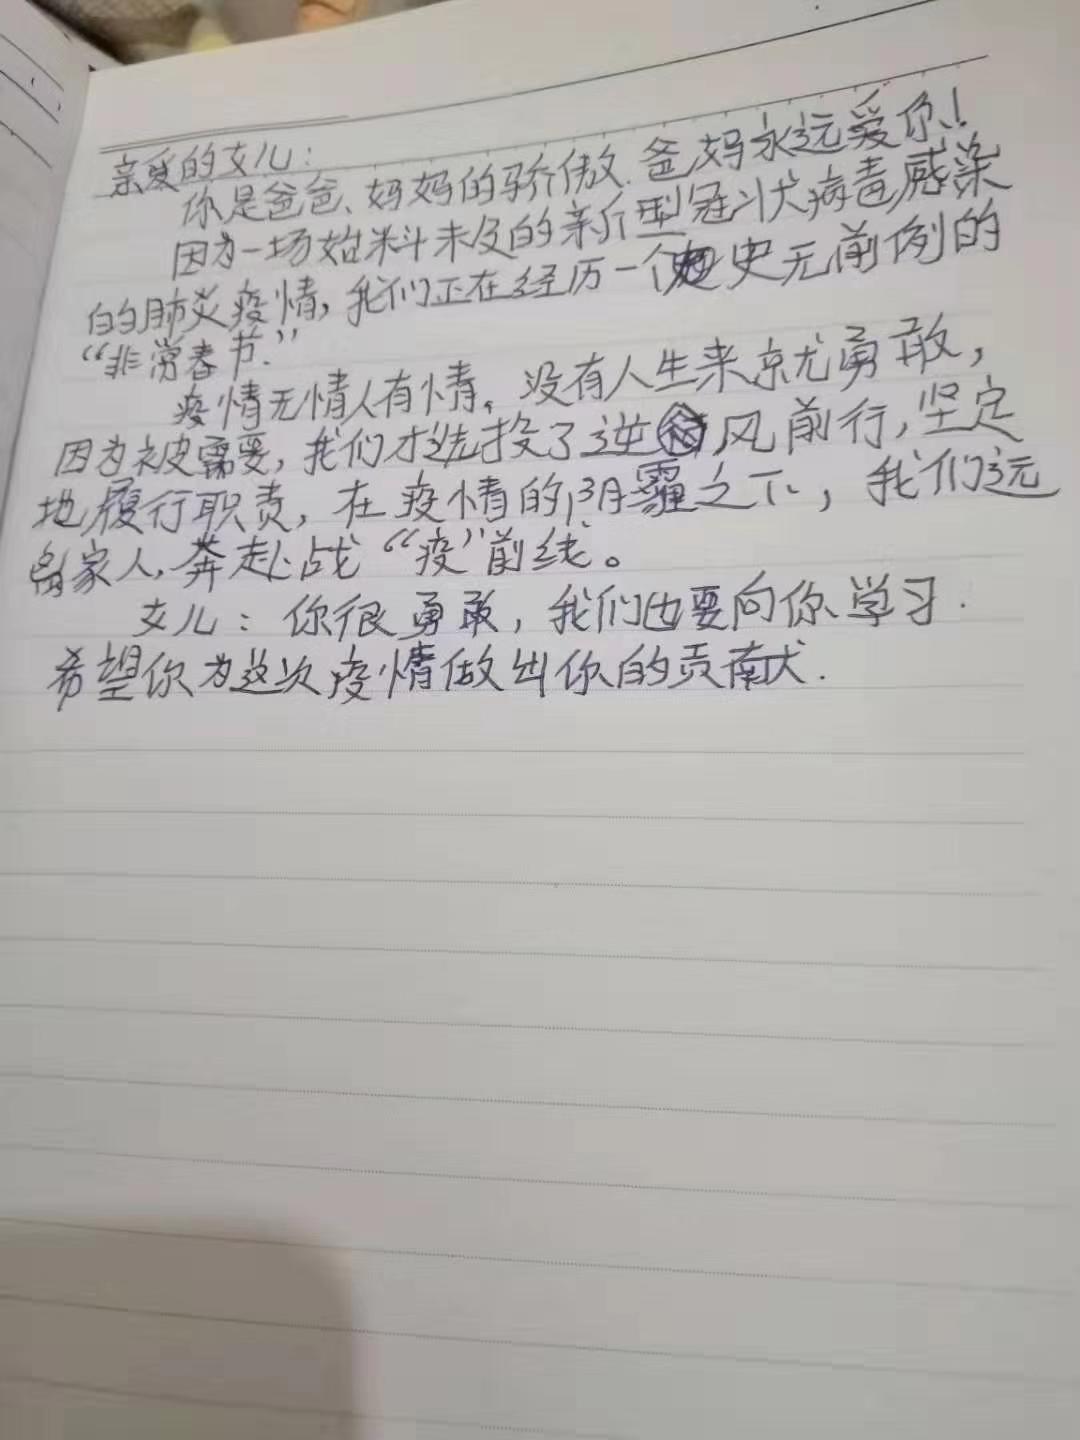 亲爱的女儿：
你是爸爸、妈妈的骄傲.爸、妈永远爱你!
因为一场始料未及的新型冠状病毒感染
的肺炎疫情,我们正在经历一个史无前例的
“非常春节.”
疫情无情人有情。没有人生来就勇敢,
因为被需要,我们才选择了逆风前行,坚定
地履行职责,在疫情的阴霾之下,我们远
离家人,奔赴战“疫”前线。
女儿：你很勇敢,我们也要向你学习.
希望你为这次疫情做出你的贡献.